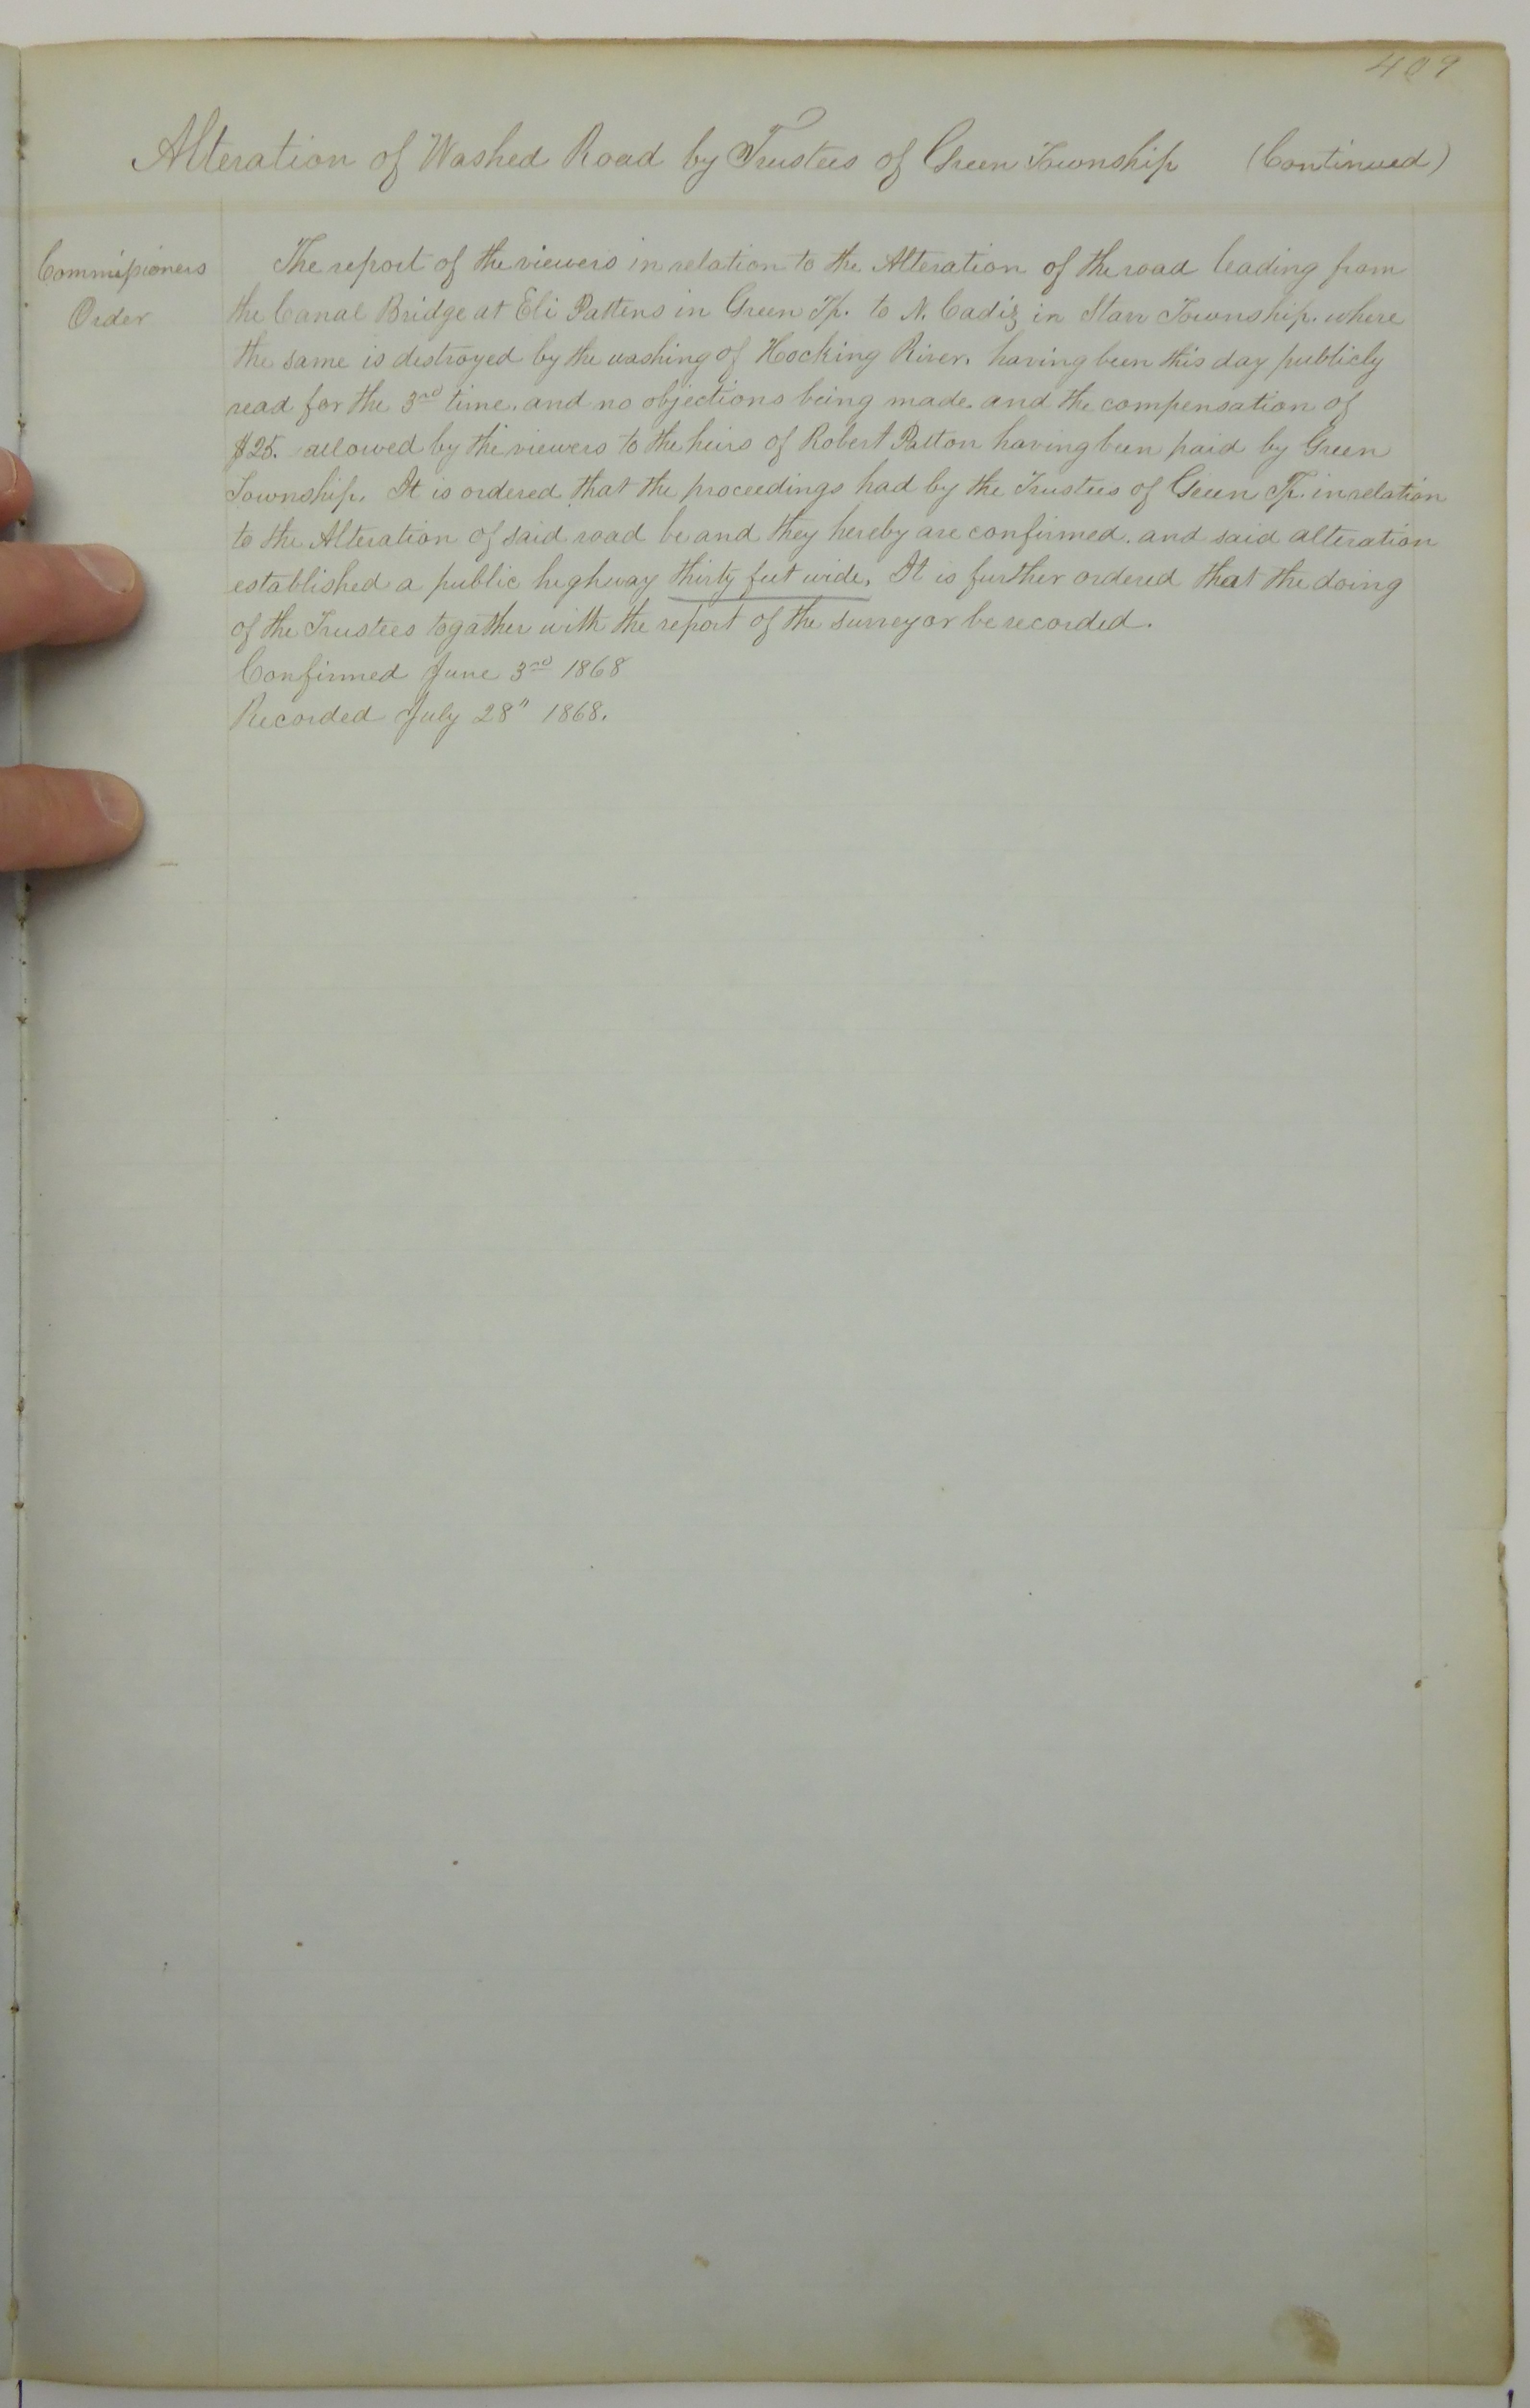 409
Alteration of Washed Road by Trustees of Green Township (Continued)
Commissioners
Order
The report of the viewers in relation to the Alteration of the road leading from
the Canal Bridge at Eli Pattens in Green Tp. to N. Cadiz in Starr Township. where
the same is destroyed by the washing of Hocking River. having been this day publicly
read for the 3rd time. and no objections being made. and the compensation of
$25. allowed by the viewers to the heirs of Robert Patton having been paid by Green
Township. It is ordered that the proceedings had by the Trustees of Green Tp. in relation
to the Alteration of said road be and they hereby are confirmed. and said alteration
established a public highway thirty feet wide. It is further ordered that the doing
of the Trustees togather with the report of the surveyor be recorded.
Confirmed June 3rd 1868
Recorded July 28" 1868.